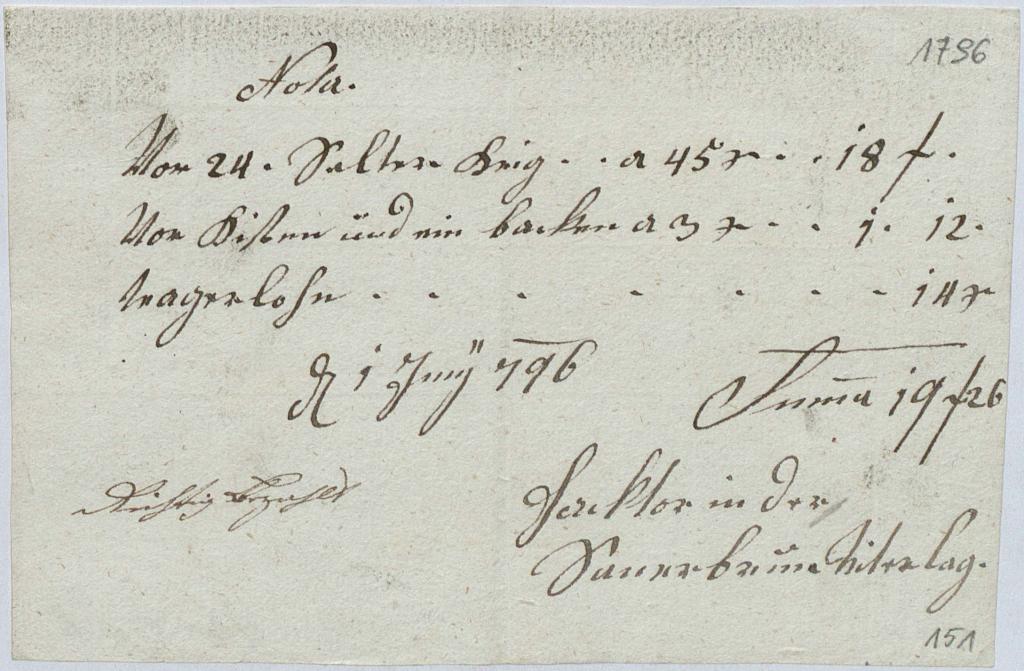 1796
Nota.
Vor 24. Selter Krig . . a 45 x . . 18 f.
Vor Kisten und ein backen a 3 x . . 1. 12.
tragerlohn . . . . . . . 14 x
d 1 Juny 796
Suma 19 f 26
Richtig bezahlt
Facktor in der
Sauerbrun Niterlag.
151